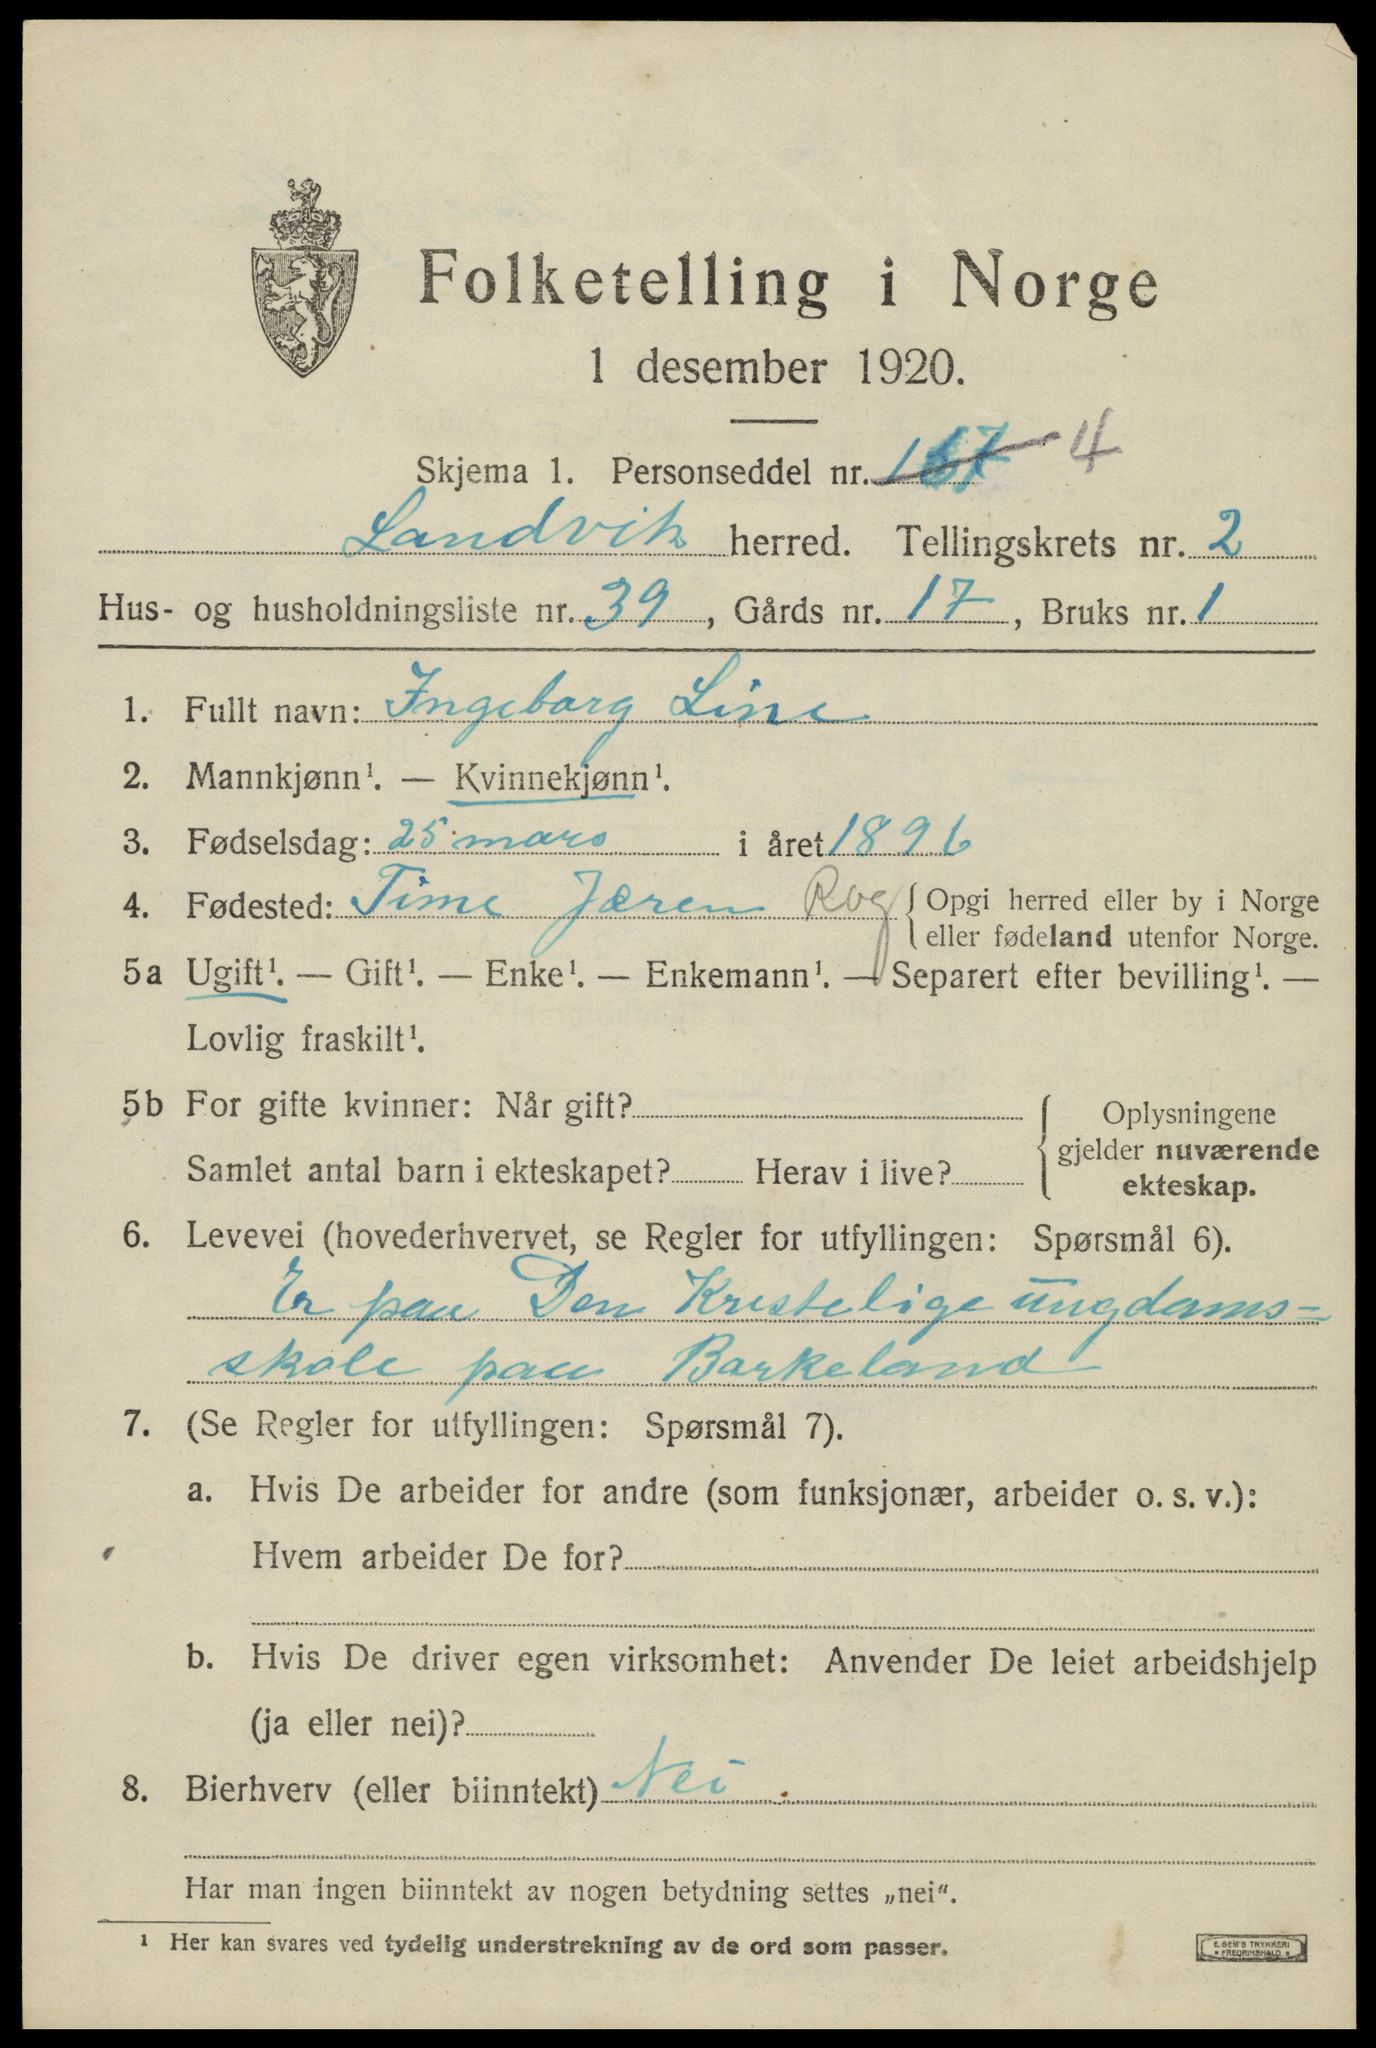 Folketelling i Norge
1 desember 1920.
Skjema 1. Personseddel nr. 4
Landvik herred. Tellingskrets nr. 2
Hus- og husholdningsliste nr. 39, Gårds nr. 17, Bruks nr. 1
1. Fullt navn: Ingeborg Line
2. Mannkjønn¹. — Kvinnekjønn¹.
3. Fødselsdag: 25 mars i året 1896
4. Fødested: Time Jæren Rog { Opgi herred eller by i Norge
eller fødeland utenfor Norge.
5a Ugift¹. — Gift¹. — Enke¹. — Enkemann¹. — Separert efter bevilling¹. —
Lovlig fraskilt¹.
5b For gifte kvinner: Når gift? { Oplysningene
gjelder nuværende
Samlet antal barn i ekteskapet? Herav i live? ekteskap.
6. Levevei (hovederhvervet, se Regler for utfyllingen: Spørsmål 6).
Er paa Den Kristelige ungdoms=
skole paa Birkeland
7. (Se Regler for utfyllingen: Spørsmål 7).
a. Hvis De arbeider for andre (som funksjonær, arbeider o. s. v.):
Hvem arbeider De for?
b. Hvis De driver egen virksomhet: Anvender De leiet arbeidshjelp
(ja eller nei)?
8. Bierhverv (eller biinntekt) Nei
Har man ingen biinntekt av nogen betydning settes „nei“.
¹ Her kan svares ved tydelig understrekning av de ord som passer.
E. SEM'S TRYKKERI
• FREDRIKSHALD •